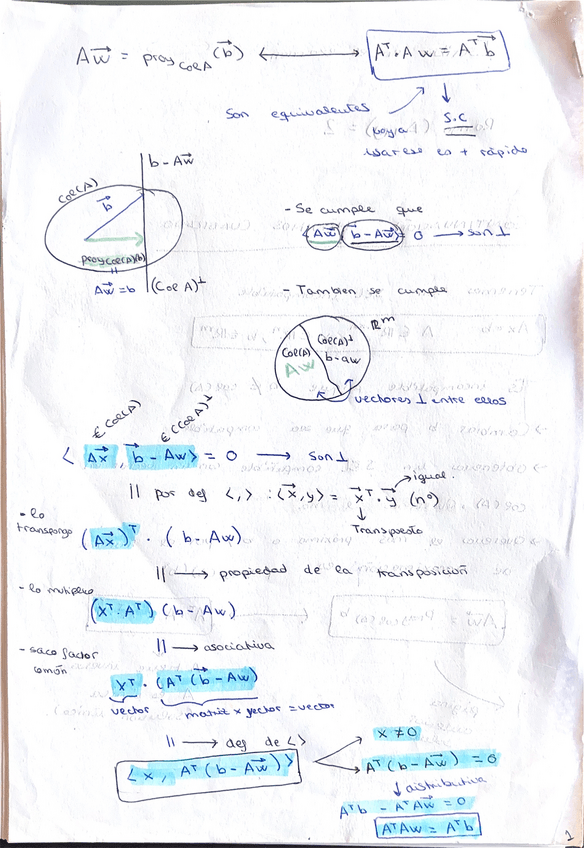 A w⃗ = proy Col A (b⃗) ⟷ Aᵀ · A w = Aᵀ b⃗
Son equivalentes
S.C
usar ese es + rápido
b - A w⃗
Col(A)
b⃗
proy Col(A)(b)
||
A w⃗ = b
(Col A)⊥
- Se cumple que
⟨A w⃗, b - A w⃗⟩ = 0 ⟶ son ⊥
- Tambien se cumple
ℝᵐ
Col(A) Col(A)⊥
Aw b-aw
vectores ⊥ entre ellos
∈ Col(A) ∈ (Col A)⊥
⟨ A x⃗, b - A w⟩ = 0 ⟶ son ⊥
|| por def ⟨ , ⟩ : ⟨x⃗, y⟩ = x⃗ᵀ · y⃗ (nº)
igual.
Transpuesto
- lo transpongo
(A x⃗)ᵀ · (b - Aw)
|| ⟶ propiedad de la transposición
- lo multiplico
(xᵀ · Aᵀ) (b - Aw)
|| ⟶ asociativa
- saco factor común
xᵀ · (Aᵀ (b - Aw)
vector matriz x vector = vector
|| ⟶ def de ⟨ ⟩
⟨ x, Aᵀ (b - A w⃗) ⟩
x ≠ 0
Aᵀ (b - A w⃗) = 0
↓ distributiva
Aᵀb - AᵀA w⃗ = 0
AᵀAw = Aᵀb
1